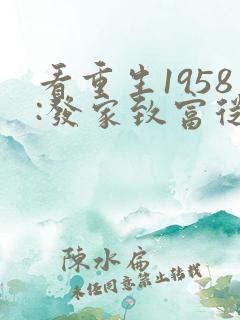 看重生1958
:發家致富從
陳水扁
未任同意禁止轉載